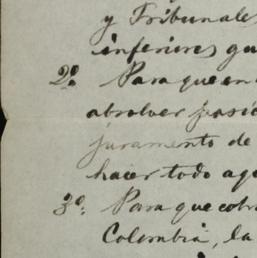 y Tribunales
inferiores qu
2º. Para que en
absolver posic
juramento de
hacer todo aq
3º. Para que cobr
Colombia, la